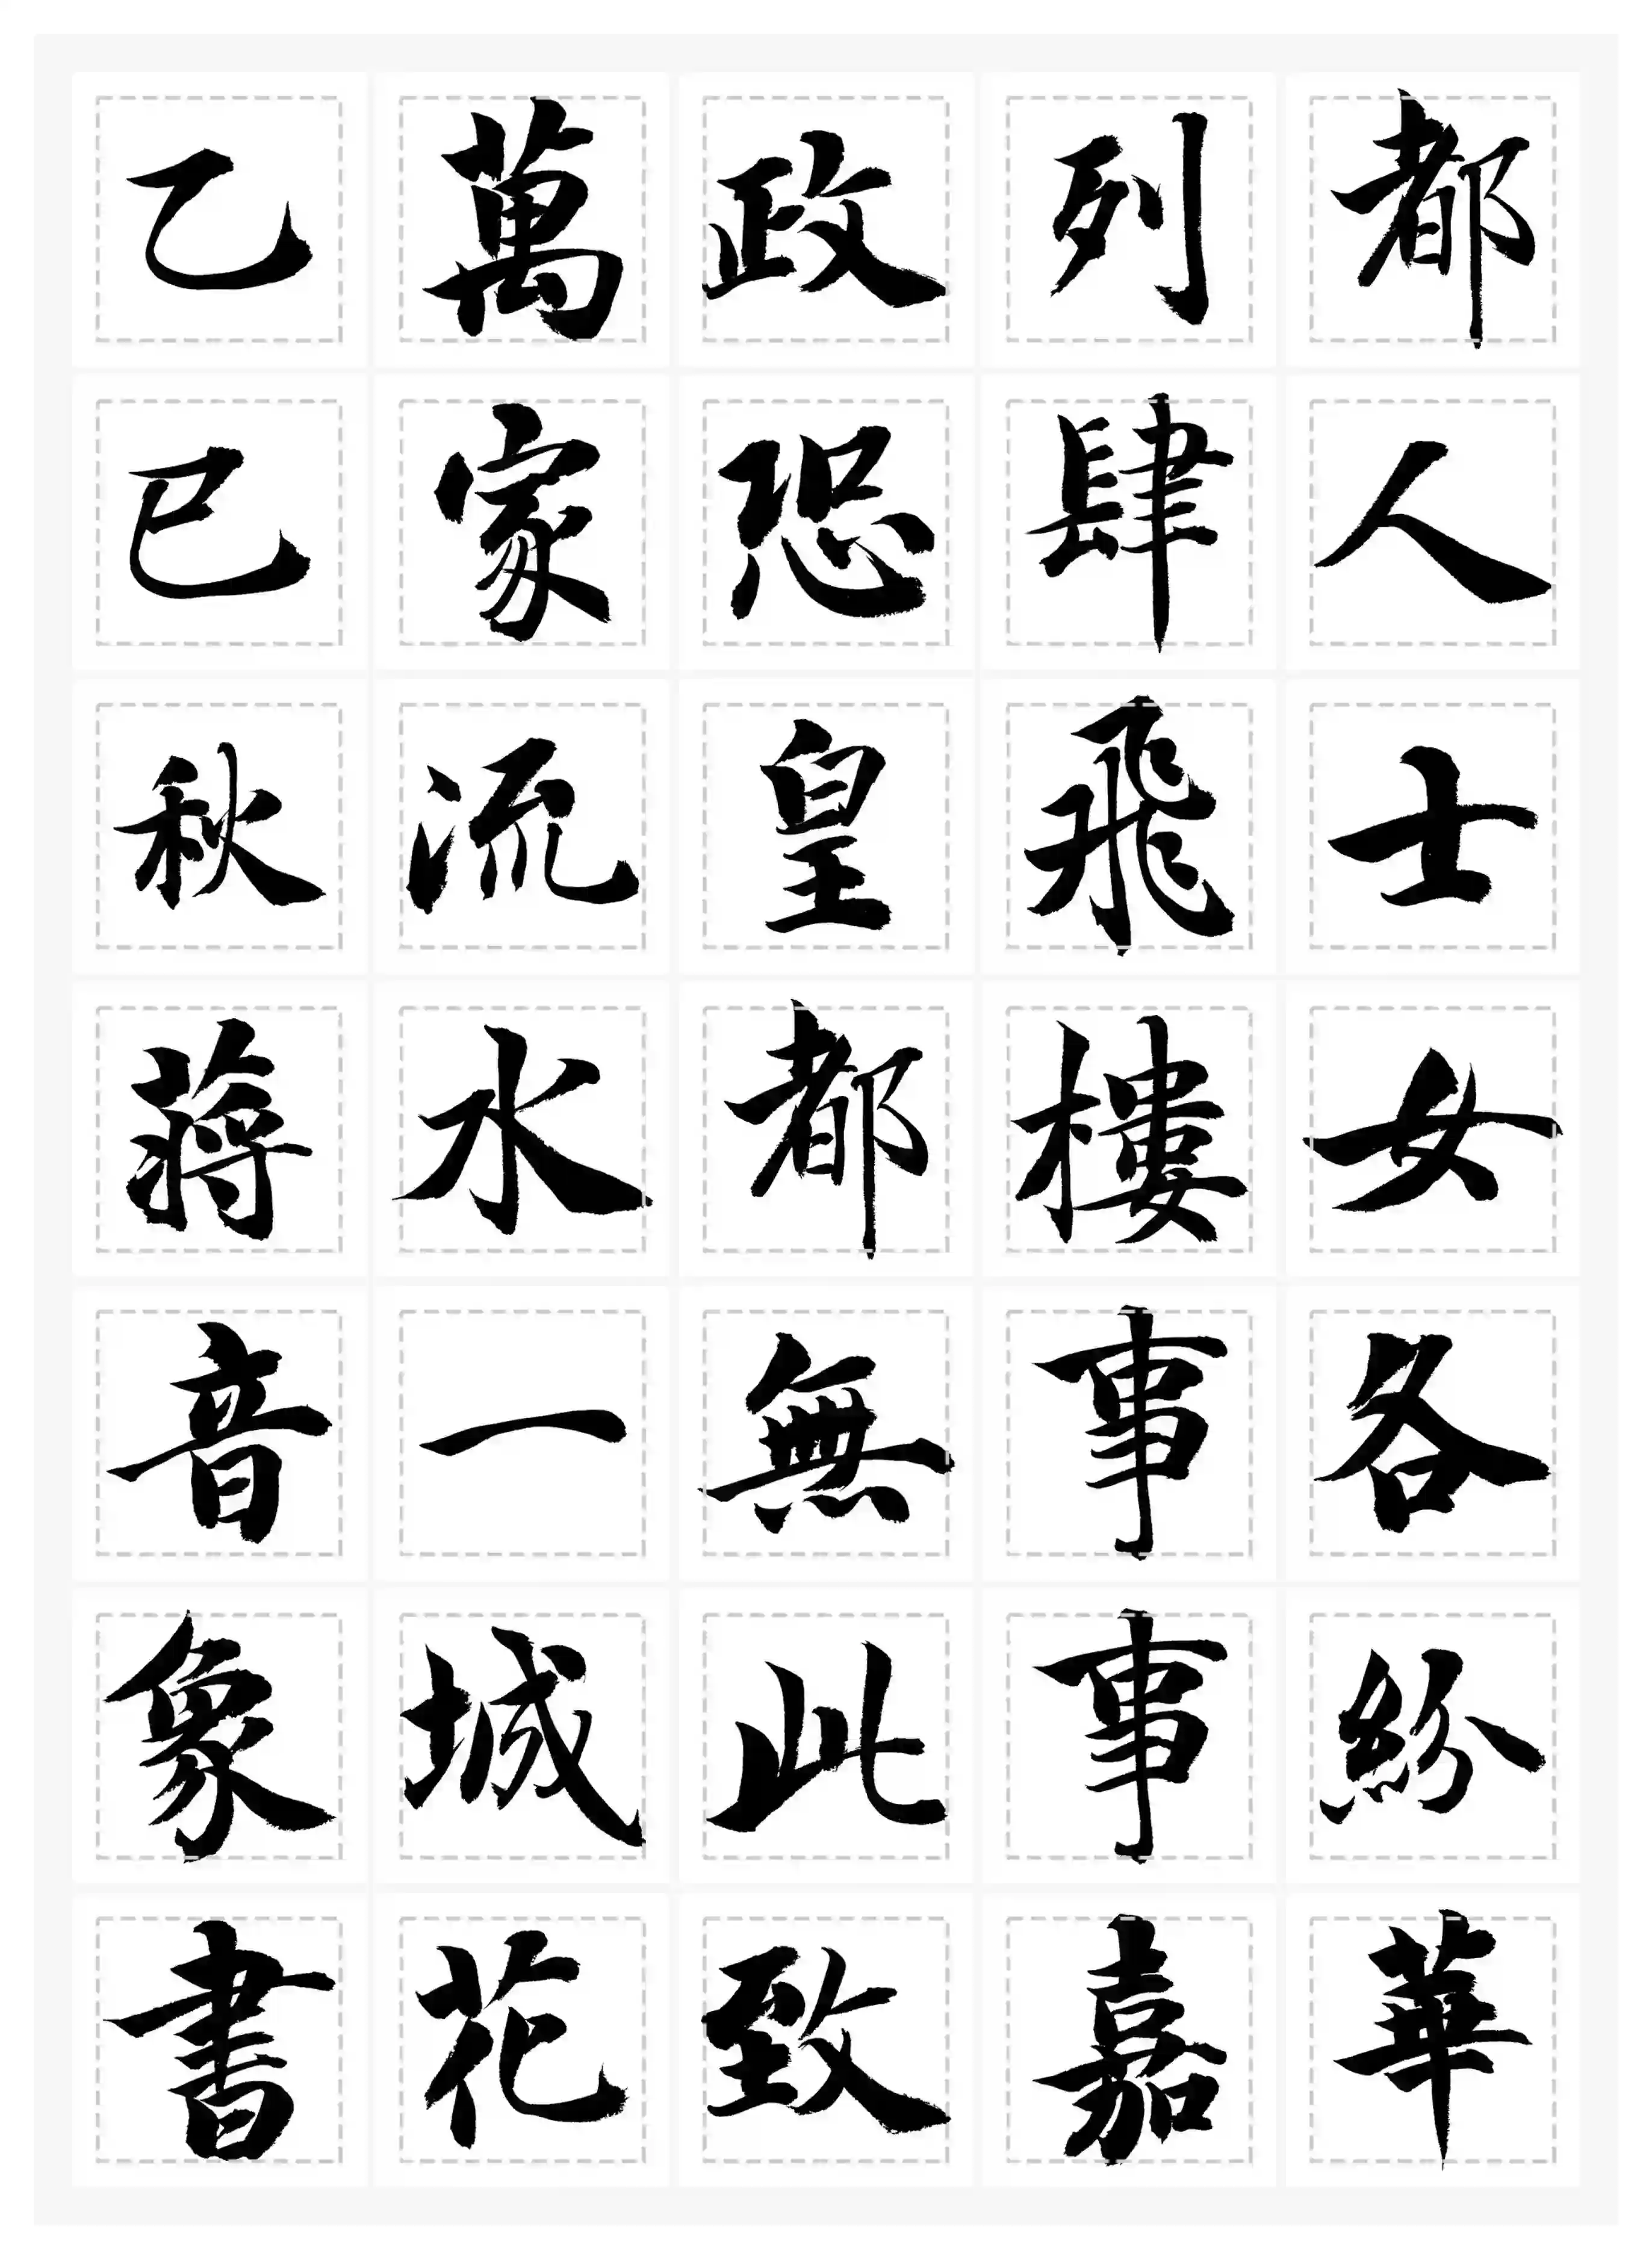 都人士女各紛華
列肆飛樓事事嘉
政恐皇都無此致
萬家流水一城花
乙巳秋蔣音象書